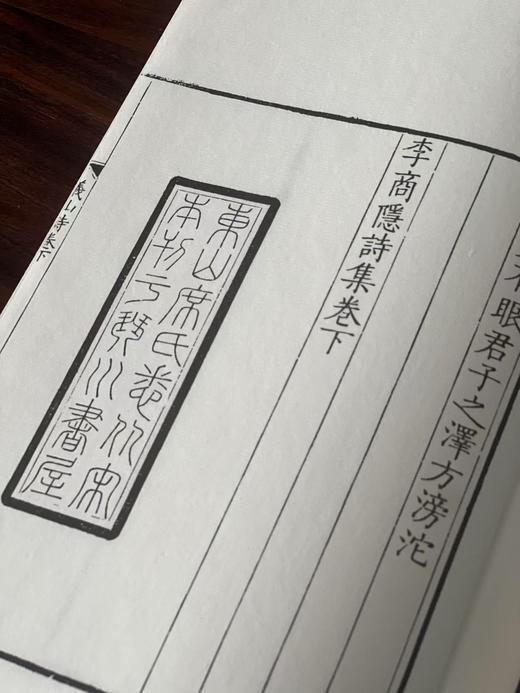 不眠君子之澤方滂沱
李商隱詩集卷下
東山席氏悉从宋
本刊于琴川書屋
義山詩卷下